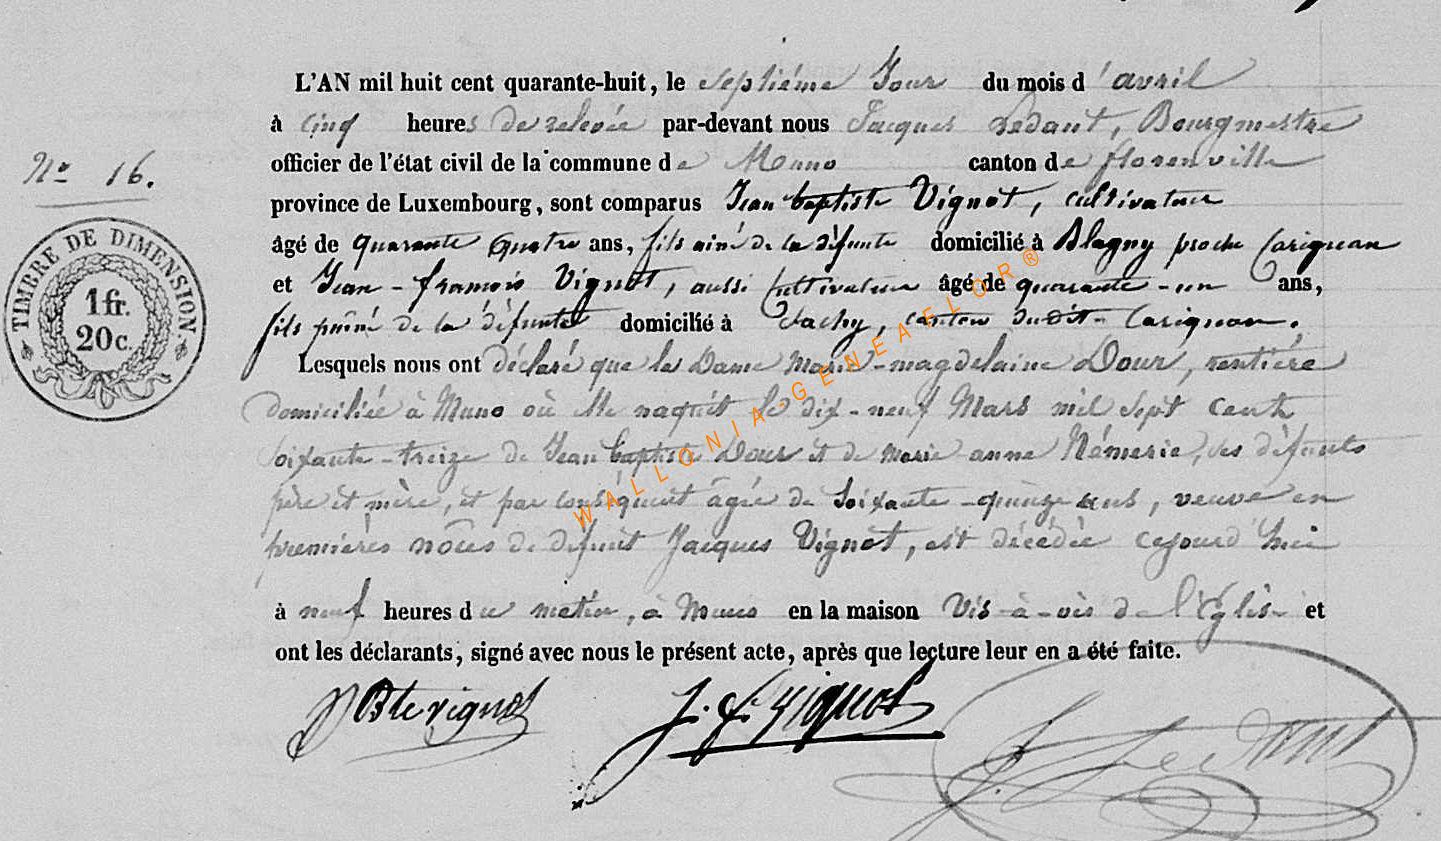 L'AN mil huit cent quarante-huit, le septiéme Jour du mois d'avril
à cinq heures de relevée par-devant nous Jacques Ledant, Bourgmestre
officier de l'état civil de la commune de Muno canton de florenville
province de Luxembourg, sont comparus Jean baptiste Vignot, cultivateur
Nº 16.
âgé de quarante quatre ans, fils ainé de la défunte domicilié à Blagny proche Carignan
et Jean-framois Vignot, aussi Cultivateur âgé de quarante-un ans,
fils puîné de la défunte domicilié à Sachy, canton dudit Carignan.
TIMBRE DE DIMENSION.
1 fr.
20 c.
Lesquels nous ont déclaré que la Dame Marie-magdelaine Dour, rentière
domiciliée à Muno où elle naquit le dix-neuf Mars mil sept cent
soixante-treize de Jean baptiste Dour et de marie anne Némerie, ses défunts
père et mère, et par conséquent âgée de Soixante-quinze ans, veuve en
premières nôces de défunt Jacques Vignot, est décédée cejourd'hui
à neuf heures du matin, à Muno en la maison Vis-à-vis de l'Eglise et
ont les déclarants, signé avec nous le présent acte, après que lecture leur en a été faite.
JBte vignot
J. f. vignot
J. Ledant
WALLONIA-GENEAFLOR®